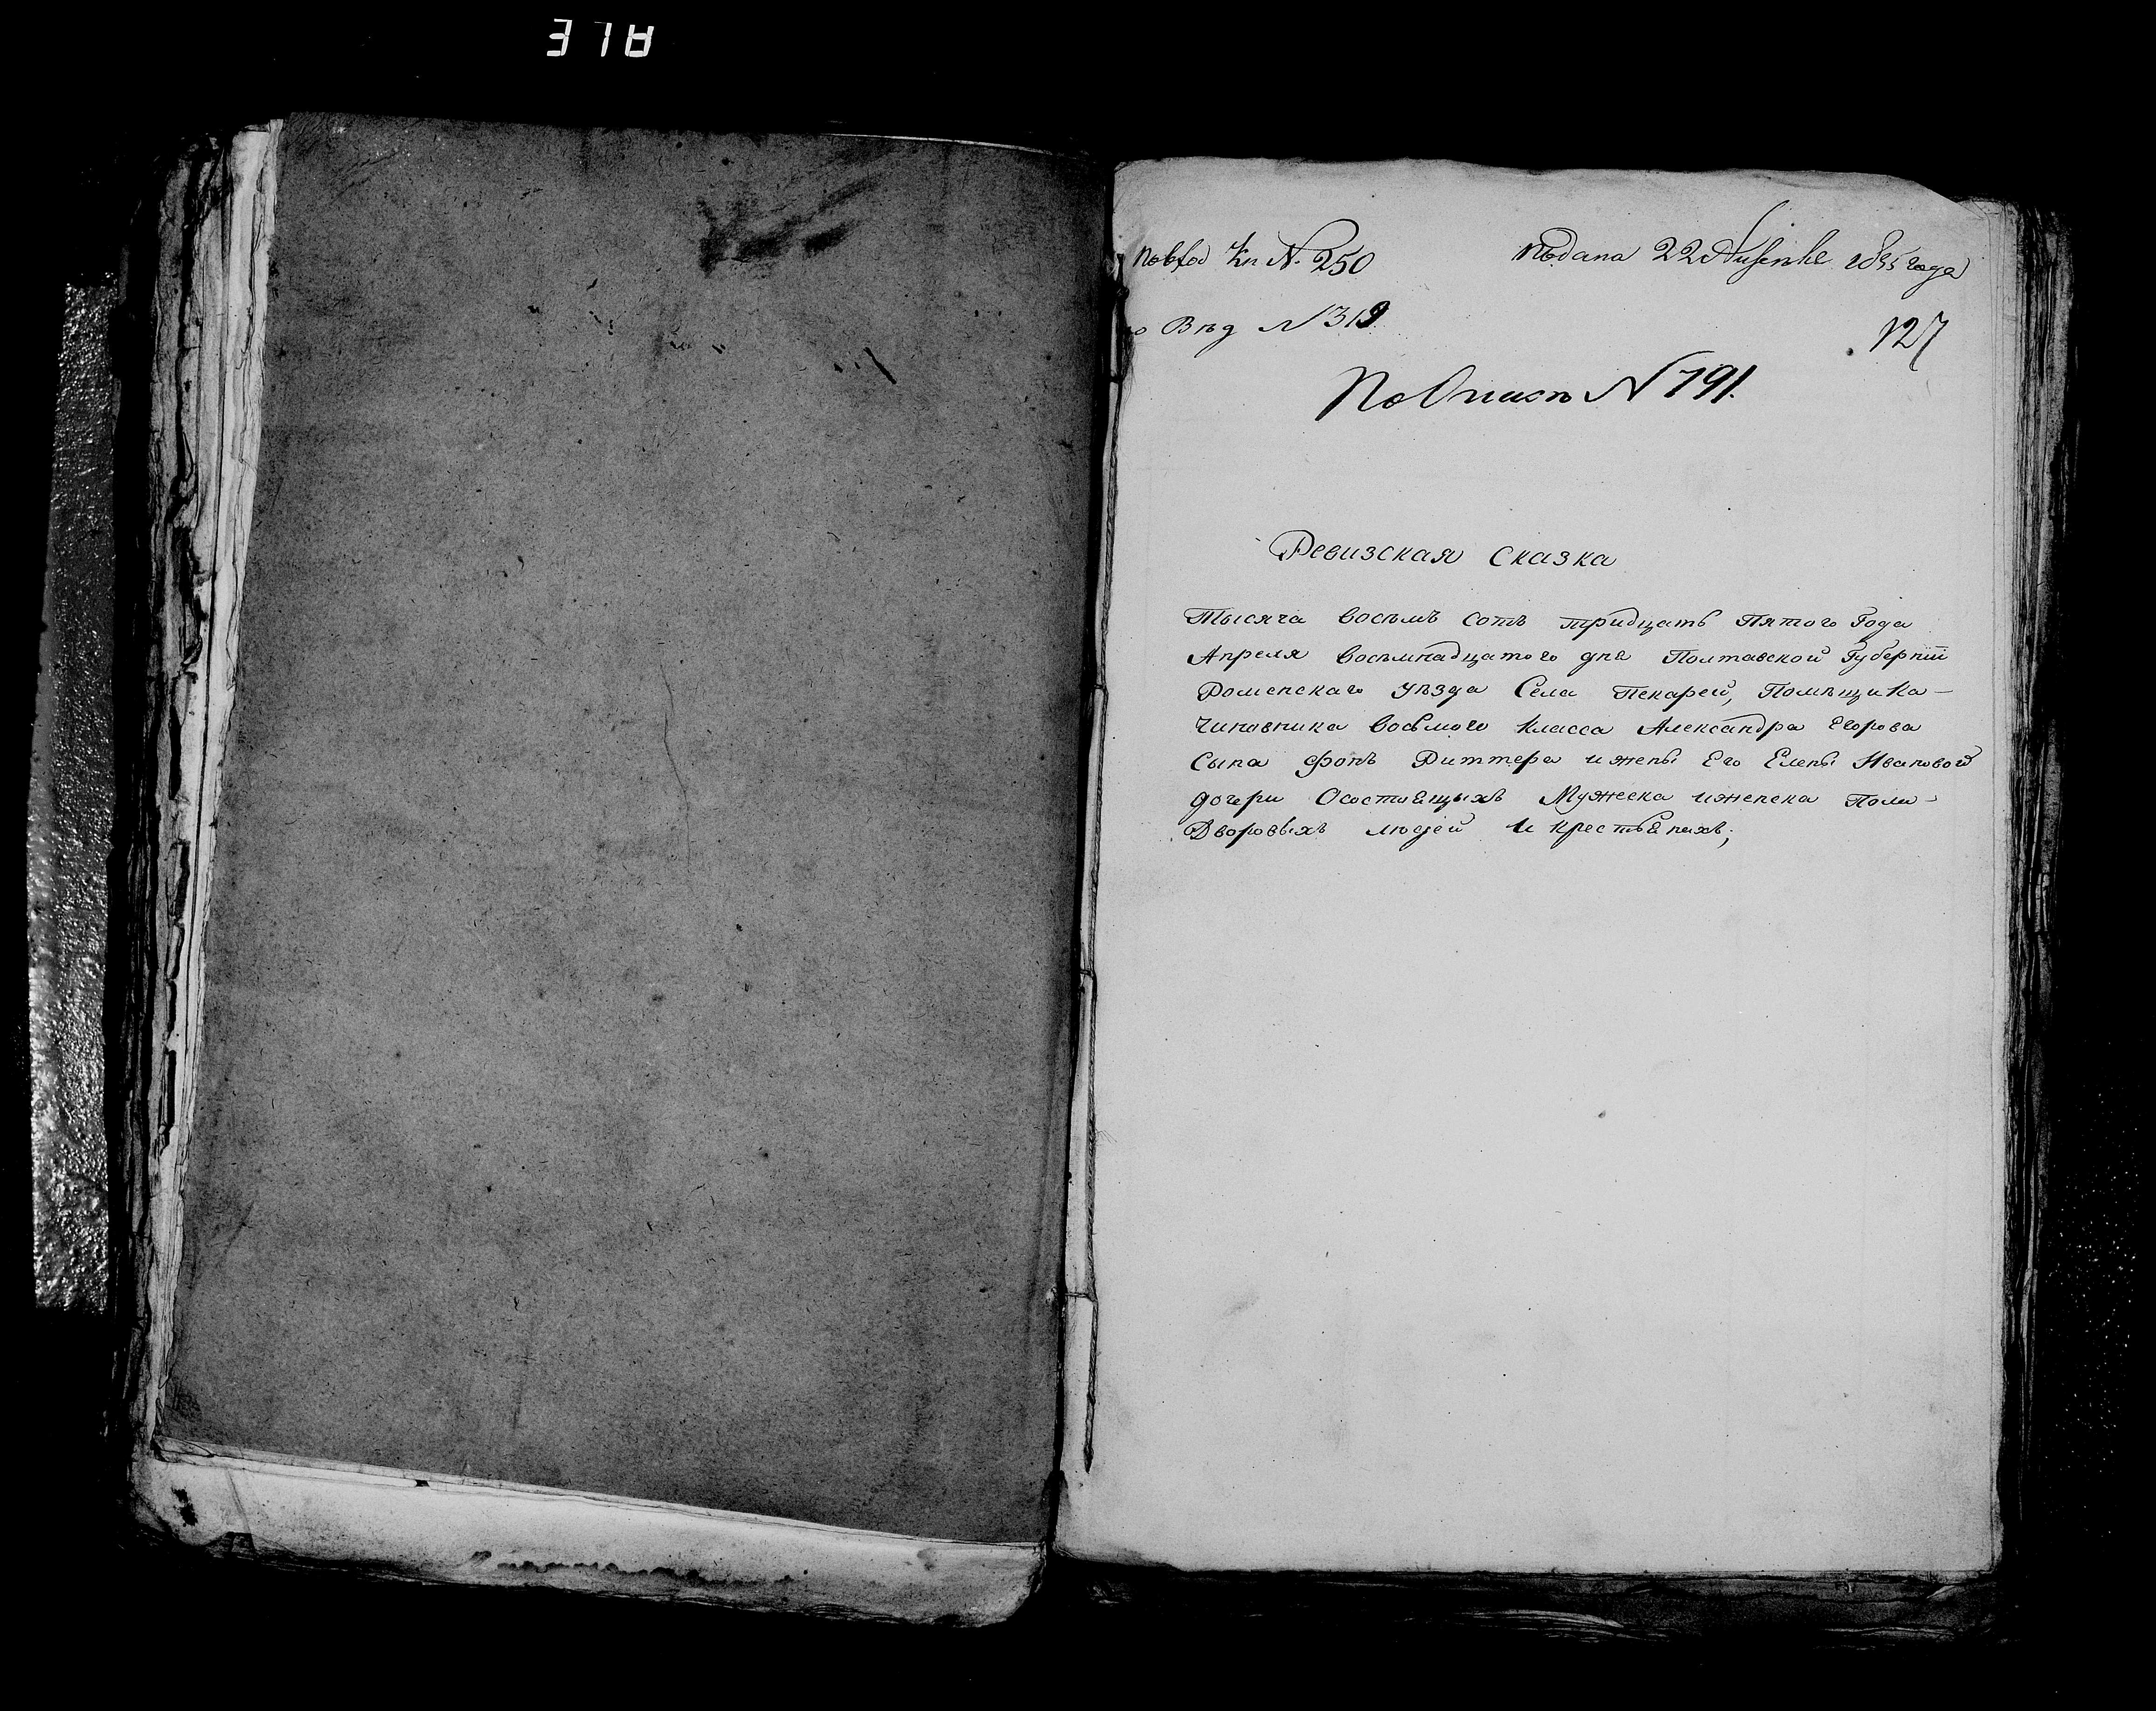 По вход Кн № 250
Подана 22 1835 года
по Вѣд № 319.
127
По Описи № 791.
Ревизская сказка
Тысяча восемъ сотъ тридцать Пятого Года
Апреля восьмнадцатого дня Полтавской Губерніи
Роменскаго уѣзда Села Пекарей, Помѣщика –
Чиновника восьмого класса Александра Егорова
сына фонъ Риттера и жены Его Елены Ивановой
дочери О состоящыхъ Мужеска и женска Пола –
Дворовыхъ людей и крестьянахъ;